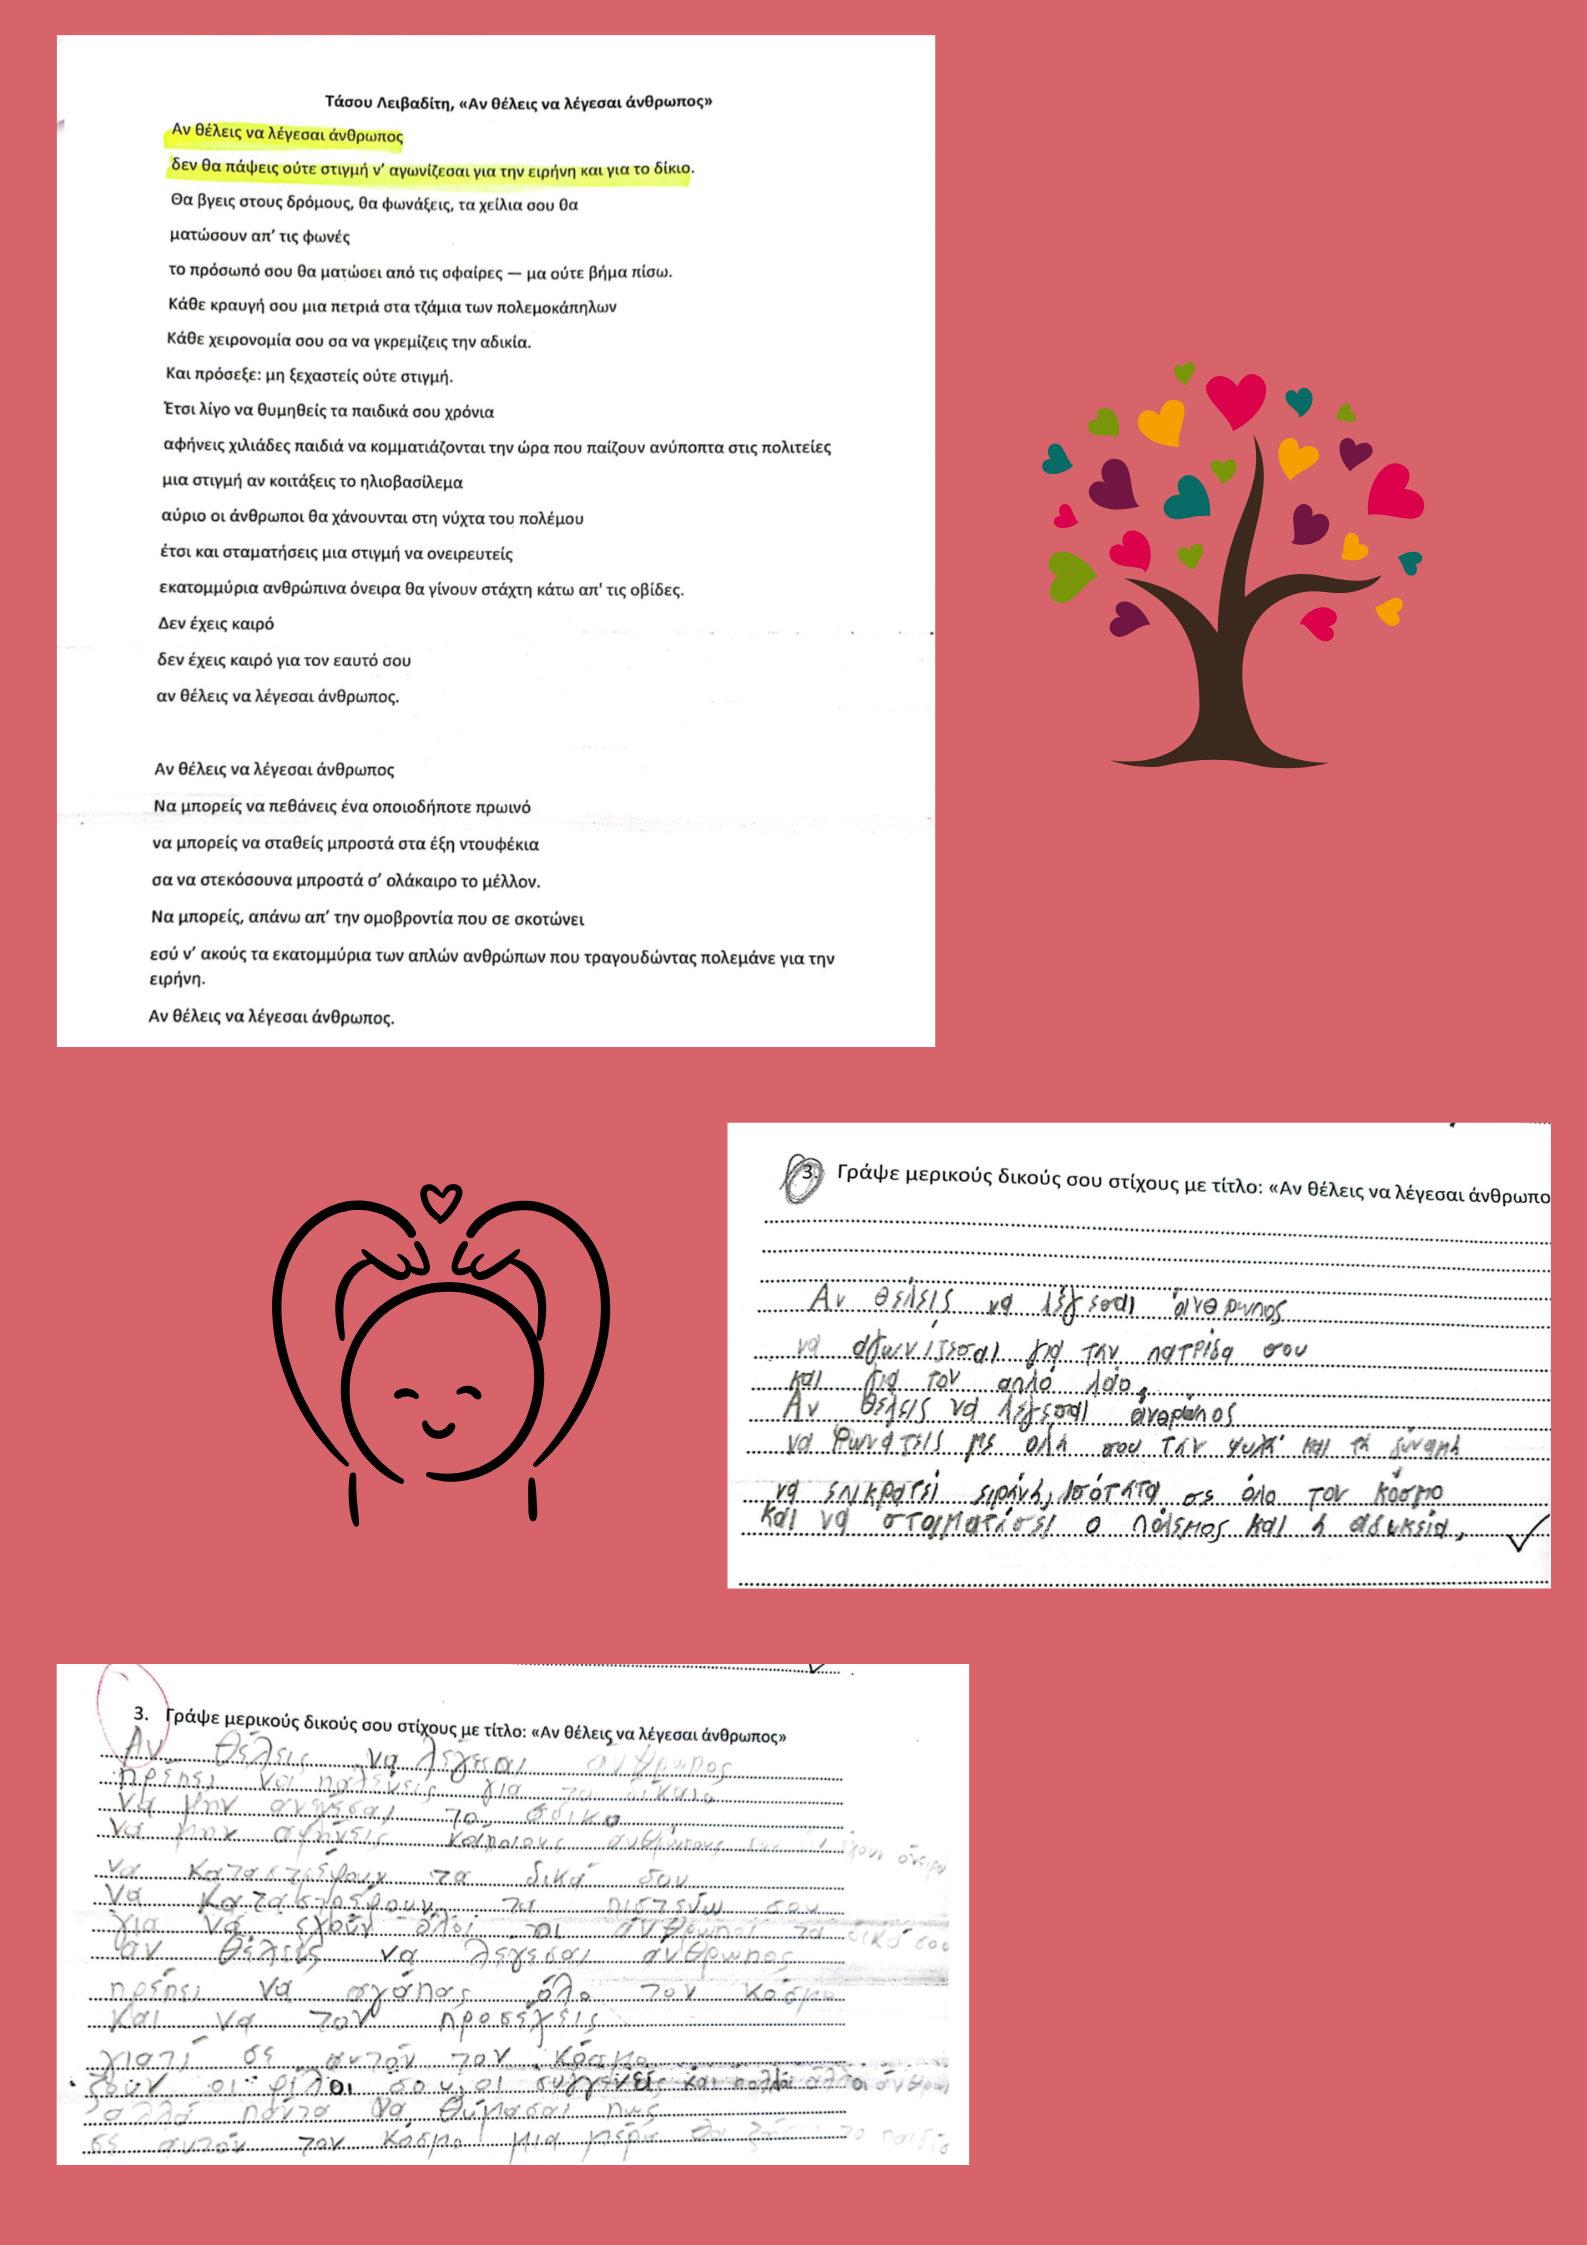 Τάσου Λειβαδίτη, «Αν θέλεις να λέγεσαι άνθρωπος»
Αν θέλεις να λέγεσαι άνθρωπος
δεν θα πάψεις ούτε στιγμή ν’ αγωνίζεσαι για την ειρήνη και για το δίκιο.
Θα βγεις στους δρόμους, θα φωνάξεις, τα χείλια σου θα
ματώσουν απ’ τις φωνές
το πρόσωπό σου θα ματώσει από τις σφαίρες — μα ούτε βήμα πίσω.
Κάθε κραυγή σου μια πετριά στα τζάμια των πολεμοκάπηλων
Κάθε χειρονομία σου σα να γκρεμίζεις την αδικία.
Και πρόσεξε: μη ξεχαστείς ούτε στιγμή.
Έτσι λίγο να θυμηθείς τα παιδικά σου χρόνια
αφήνεις χιλιάδες παιδιά να κομματιάζονται την ώρα που παίζουν ανύποπτα στις πολιτείες
μια στιγμή αν κοιτάξεις το ηλιοβασίλεμα
αύριο οι άνθρωποι θα χάνουνται στη νύχτα του πολέμου
έτσι και σταματήσεις μια στιγμή να ονειρευτείς
εκατομμύρια ανθρώπινα όνειρα θα γίνουν στάχτη κάτω απ' τις οβίδες.
Δεν έχεις καιρό
δεν έχεις καιρό για τον εαυτό σου
αν θέλεις να λέγεσαι άνθρωπος.
Αν θέλεις να λέγεσαι άνθρωπος
Να μπορείς να πεθάνεις ένα οποιοδήποτε πρωινό
να μπορείς να σταθείς μπροστά στα έξη ντουφέκια
σα να στεκόσουνα μπροστά σ’ ολάκαιρο το μέλλον.
Να μπορείς, απάνω απ’ την ομοβροντία που σε σκοτώνει
εσύ ν’ ακούς τα εκατομμύρια των απλών ανθρώπων που τραγουδώντας πολεμάνε για την
ειρήνη.
Αν θέλεις να λέγεσαι άνθρωπος.
3. Γράψε μερικούς δικούς σου στίχους με τίτλο: «Αν θέλεις να λέγεσαι άνθρωπο
Αν θέλεις να λέγεσαι άνθρωπος
να αγωνίζεσαι για την πατρίδα σου
και για τον απλό λάο,
Αν θέλεις να λέγεσαι άνθρωπος
να φωνάζεις με όλη σου την ψυχή και τη δύναμη
να επικρατεί ειρήνη, ισότητα σε όλο τον κόσμο
και να σταματίσει ο πόλεμος και η αδικεία,
3. Γράψε μερικούς δικούς σου στίχους με τίτλο: «Αν θέλεις να λέγεσαι άνθρωπος»
Αν θέλεις να λέγεσαι άνθρωπος
πρέπει να παλεύεις για το δίκαιο
να μην ανεχέσαι το άδικο
να μην αφήνεις κάποιους ανθρώπους που δεν έχουν όνειρα
να καταστρέφουν τα δικά σου
να καταστρέφουν τα πιστεύω σου
για να έχουν όλοι οι άνθρωποι τα δικά σου
αν θέλεις να λέγεσαι άνθρωπος
πρέπει να αγάπας όλο τον κόσμο
και να τον προσέχεις
γιατί σε αυτόν τον κόσμο
ζουν οι φίλοι σου, οι συγγενείς και πολλοί άλλοι άνθρωποι
αλλά πάντα να θυμάσαι πως
σε αυτόν τον κόσμο μια μέρα θα ζήσει το παιδί σ